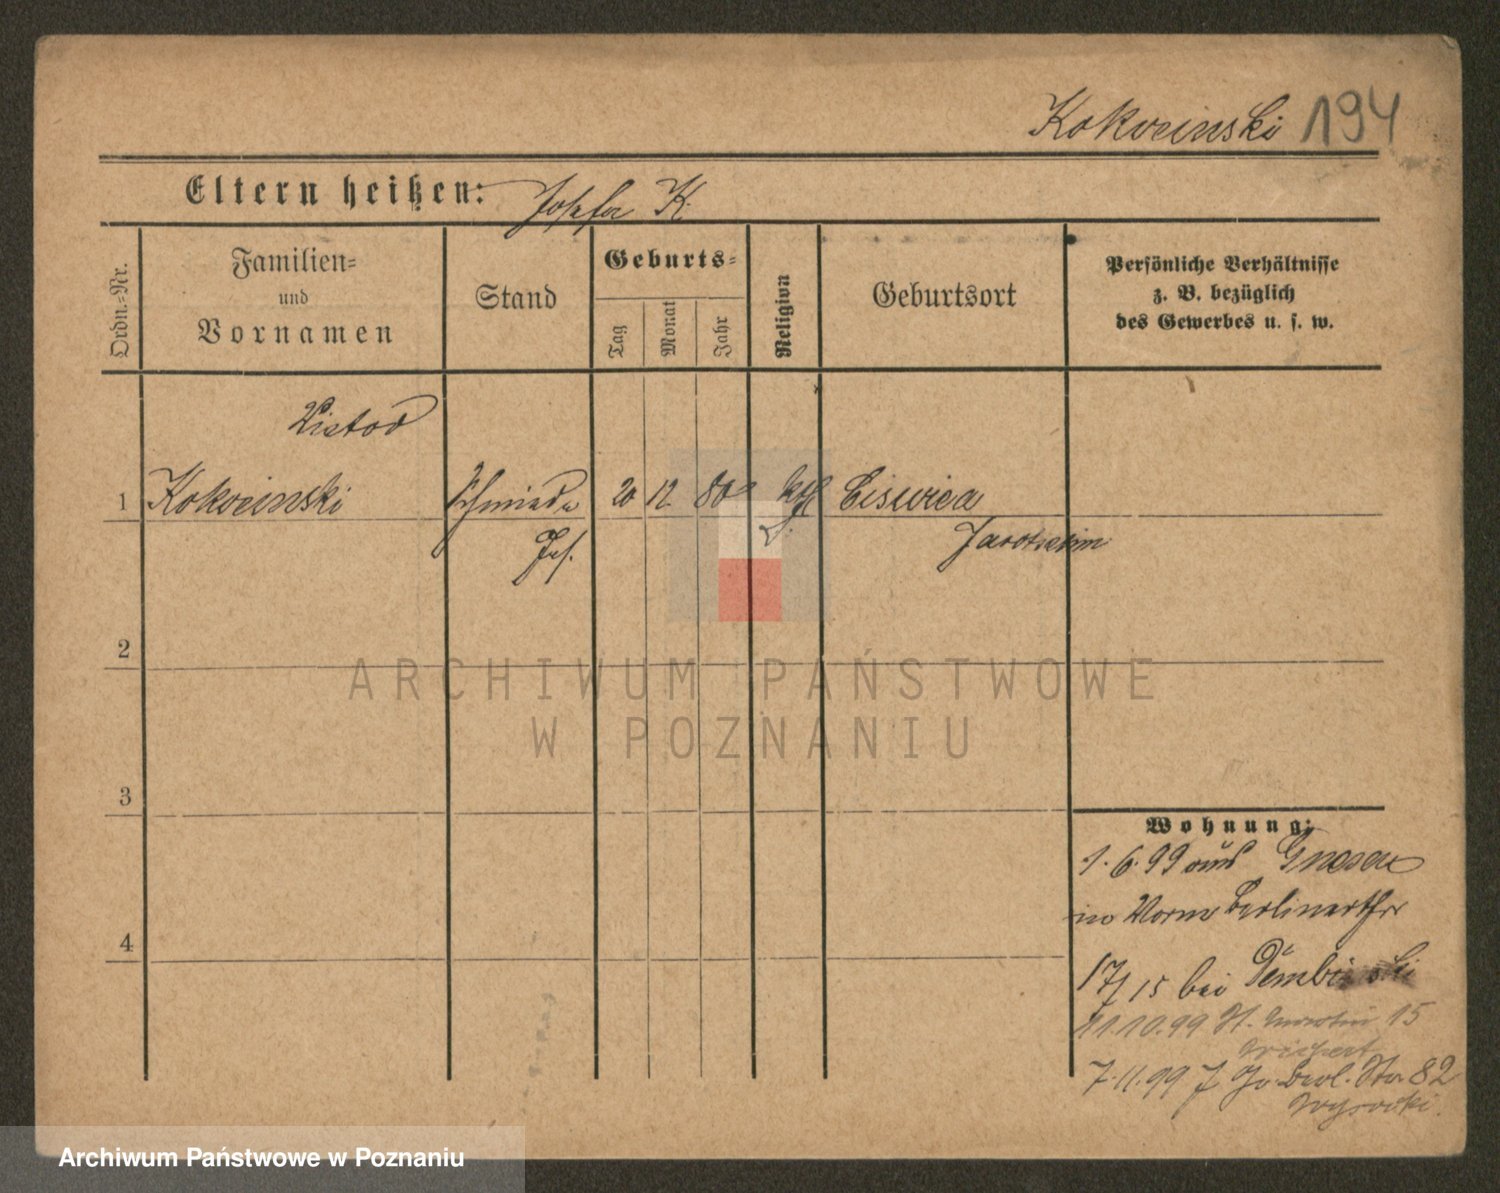 Kokocinski 194
Eltern heißen: Josefa K.
Ordn.-Nr.
Familien-
und
Vornamen
Stand
Geburts-
Tag
Monat
Jahr
Religion
Geburtsort
Persönliche Verhältnisse
z. B. bezüglich
des Gewerbes u. s. w.
Victor
1 Kokocinski Schmiede 20 12 80 kth
Ges. Jarotschin
2
3
4
Wohnung:
1.6.99 aus Gnesen
in Berlinerthor
17/15 bei Dembinski
11.10.99 St. Martin 15
7.11.99 82
Wysocki.
ARCHIWUM PAŃSTWOWE
W POZNANIU
Archiwum Państwowe w Poznaniu